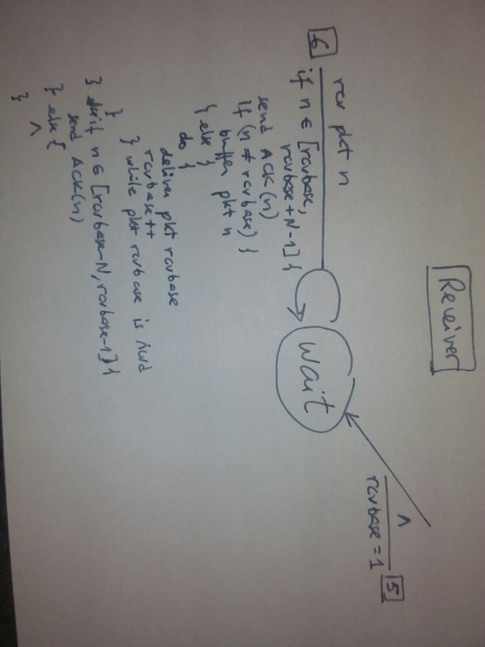 Receiver
Λ
rcvbase = 1
5
wait
6
rcv pkt n
if n ∈ [rcvbase,
rcvbase+N-1] {
send ACK(n)
if (n ≠ rcvbase) {
buffer pkt n
} else {
do {
deliver pkt rcvbase
rcvbase++
} while pkt rcvbase is rcvd
}
} else if n ∈ [rcvbase-N, rcvbase-1] {
send ACK(n)
} else {
Λ
}